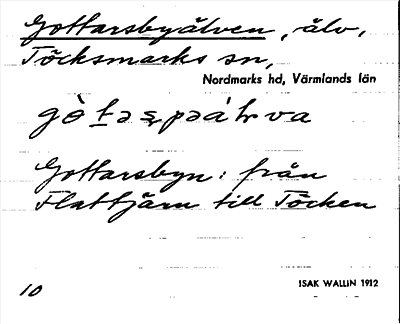 Gottarsbyälven, älv,
Töcksmarks sn,
Nordmarks hd, Värmlands län
Gottarsbyn: från
Flattjärn till Töcken
ISAK WALLIN 1912
10